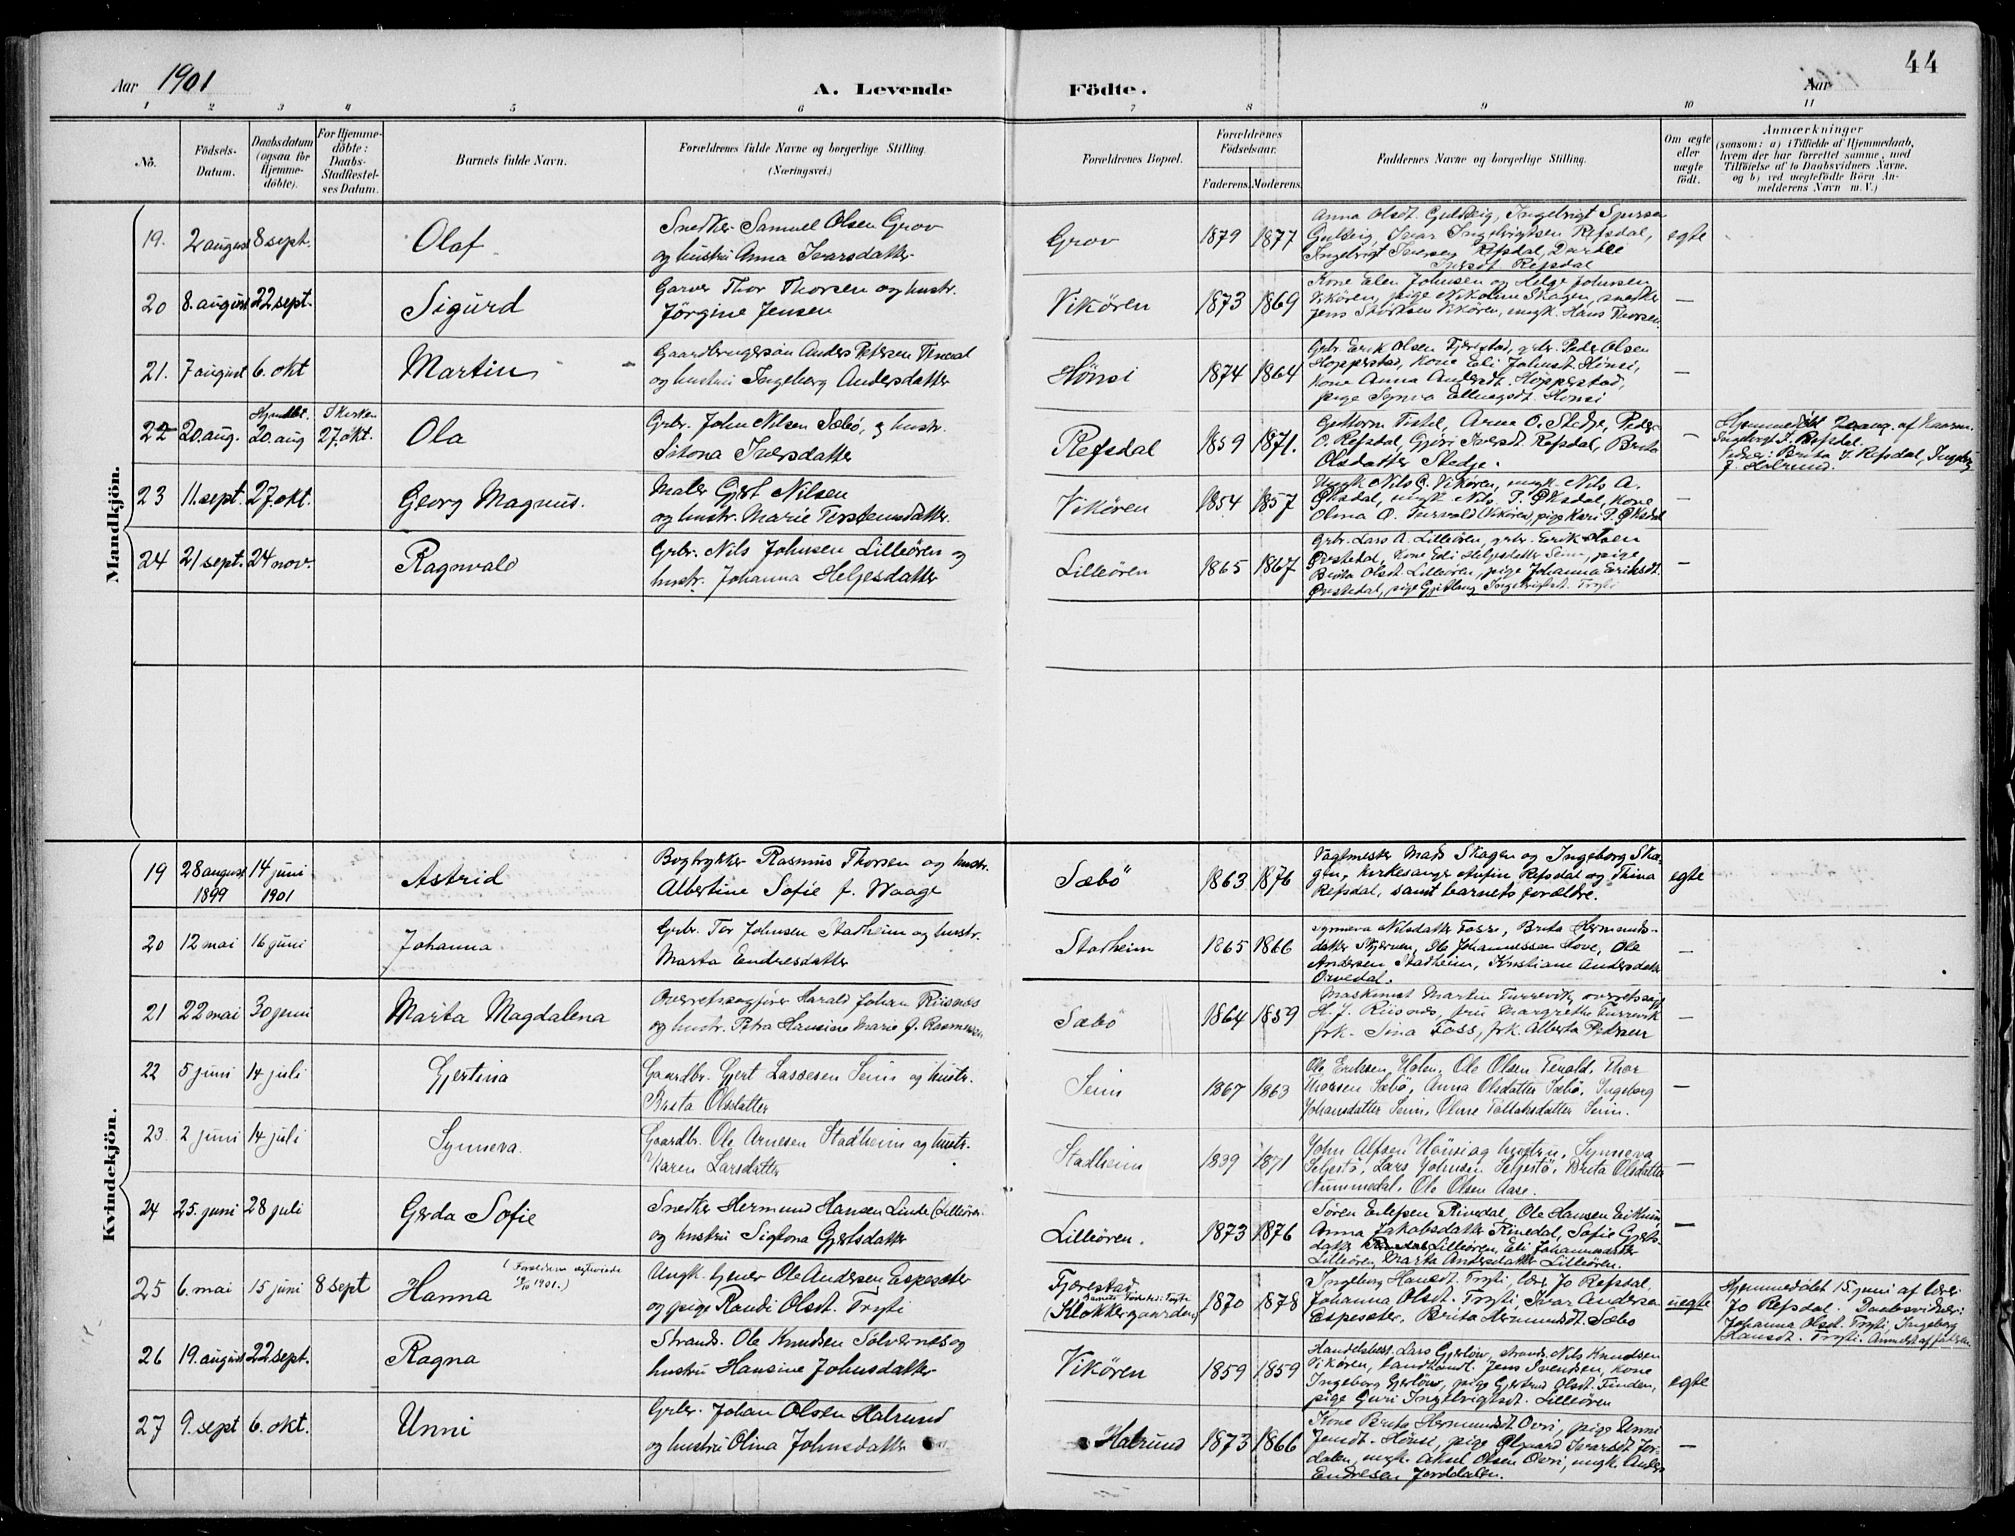 Aar 1901
A. Levende Födte.
Aar
44
1 2 3 4 5 6 7 8 9 10 11
No.
Födsels-
Datum.
Daabsdatum
(ogsaa for
Hjemme-
döbte).
For Hjemme-
döbte:
Daabs-
Stadfæstel-
ses Datum.
Barnets fulde Navn.
Forældrenes fulde Navne og borgerlige Stilling.
(Næringsvei.)
Forældrenes Bopæl.
Forældrenes
Födselsaar.
Faderens. Moderens.
Faddernes Navne og borgerlige Stilling.
Om ægte
eller
uægte
födt.
Anmærkninger
(saasom: a) i Tilfælde af Hjemmedaab,
hvem der har forrettet samme, med
Tilföielse af to Daabsvidners Navne.
og b) ved uægtefödte Börn An-
melderens Navn m. V.)
Mandkjön.
19. 2 august 8 sept. Olaf
Snedker Samuel Olsen Grov
og hustru Anna Ivarsdatter
Grov 1879 1877
Anna Olsdt. Guldteig, Ingebrigt
Guldteig, Ivar Ingebrigtsen Refsdal,
Ingebrigt Iversen Refsdal,
Refsdal
egte
20 8. august 22 sept. Sigurd
Garver Thor Thorsen og hustr.
Jörgine Jensen
Vikören 1873 1869
Kone Elen Johnsen og Helge Johnsen
Vikören, pige Nikoline Skagen, snedker
Jens Vikören, ungk. Hans Thorsen.
—
21. 7 august 6. okt Martin
Gaardbrugersön Anders Petersen
og hustru Ingeberg Andersdatter
Hönsi 1874 1864
Grbr. Erik Olsen Fjærestad, grbr. Peder Olsen
Hopperstad, Kone Eli Johnsdt. Hönsi,
Kone Anna Andersdt. Hopperstad,
pige Synva Hönsi
—
22 20. aug. Hjemdbt. 20. aug I kirken 27. okt. Ola
Grbr. John Nilsen Sæbö, og hustr.
Iversdatter
Refsdal 1859 1871.
Arne O. Stedje, Peder
O. Refsdal, Gjöri Iversdt. Refsdal, Brita
Olsdatter Stedje.
—
Hjemmedöbt 20 aug. af
Ingeborg I. Refsdal.
Vidner: Brita I. Refsdal, Ingebr.
J. Halrund.
23 11. sept. 27. okt. Georg Magnus.
Maler Gjert Nilsen
og hustr. Marie Terstensdatter.
Vikören 1854 1857
Ungk Nils G. Vikören, ungk. Nils A.
Öksdal, ungk. Nils P. Öksdal, Kone
Olina O. (Vikören), pige Kari P. Öksdal
—
24 21 sept. 24 nov. Ragnvald
Grbr. Nils Johnsen Lilleören og
hustr. Johanna Helgesdatter
Lilleören 1865 1867
Grbr. Lars A. Lilleören, grbr. Erik Olsen
Övstedal, Kone Eli Helgesdatter Seim, pige
Brita Olsdt. Lilleören, pige Johanna Eriksdt.
Övstedal, pige Ingebrigtsdt. Tryti
—
Kvindekjön.
19 28 august 1899 14 juni 1901 Astrid
Bogtrykker Rasmus Thorsen og hustr.
Albertine Sofie f. Waage
Sæbö 1863 1876
Vagtmester Mads Skagen og Ingeborg Ska-
gen, kirkesanger Refsdal og Thina
Refsdal, samt barnets forældre.
egte
20 12 mai 16 juni Johanna
Grbr. Tor Johnsen Stadheim og hustr.
Marta Endresdatter
Stadheim 1865 1866
Synneva Nilsdatter Fosse, Brita Hermunds-
datter Skjerven, Ole Johannessen Hove, Ole
Andersen Stadheim, Kristiane Andersdatter
—
21 22 mai 30 juni Marta Magdalena
Overretssagförer Harald Johan Riisnæs
og hustr. Petra Hansine Marie f. Rasmussen
Sæbö 1864 1859
Maskinist Martin Turrevik, overretssagf.
H. J. Riisnæs, fru Margrethe Turrevik
frk. Sina Foss, frk. Alberta Pedersen
—
22 5 juni 14 juli Gjertina
Gaardbr. Gjert Lassesen Seim og hustr.
Brita Olsdatter
Seim 1867 1863
Ole Eriksen Holen, Ole Olsen Tenold, Thor
Thorsen Sæbö, Anna Olsdatter Sæbö, Ingeborg
Johansdatter Seim, Seim.
—
23. 2 juni 14 juli Synneva.
Gaardbr. Ole Arnesen Stadheim og hustr.
Karen Larsdatter
Stadheim 1839 1871
John Alfsen Hönsi og hustru, Synneva
Seljestö, Lars Johnsen Seljestö, Brita Olsdatter
Nummedal, Ole Olsen Aase.
—
24 25. juni 28 juli Gerda Sofie
Snedker Hermund Hansen Linde (Lilleören)
og hustru Sigtona Gjertsdatter
Lilleören. 1873 1876
Sören Rinedal, Ole Hansen
Anna Jakobsdatter Rinedal, Sofie Gjerts-
datter Lilleören, Eli Johannesdatter
Lilleören, Marta Andersdatter Lilleören.
—
25 6. mai 15 juni 8 sept Hanna
(Forældrene egteviede 1901.)
Ungk. Ole Andersen Espeseter
og pige Randi Olsdt. Tryti
Fjærestad
(Klokkergaarden) 1870 1878
Ingeborg Hansdt. Tryti, lær. Jo Refsdal,
Johanna Olsdt. Tryti, Ivar Andersen
Espeseter, Brita Hermundsdt. Sæbö
uegte
Hjemmedöbt 15. juni af lærer
Jo Refsdal. Daabsvidner:
Johanna Olsdt. Tryti, Ingeborg
Hansdt. Tryti. Anmeldt af faderen
26 19. august 22 sept. Ragna
Strands. Ole Knudsen Solvernes og
hustru Hansine Johnsdatter
Vikören 1859 1859
Handelsbest. Lars Gjerlöw, strands. Nils Knudsen
Vikören, landhandl. Jens Svendsen, Kone
Ingeborg Gjerlöw, pige Gjertrud Olsdt. Finden,
pige Guri Ingebrigtsdt. Lilleören
egte
27 9. sept 6. okt. Unni
Grbr. Johan Olsen Halrund
og hustru Olina Johnsdatter
Halrund 1873 1866
Kone Brita Hermundsdt. Ovri, pige Unni
Jensdt. Hönsi, pige Olgaard Ivarsdt. Jor-
dalen, ungk. Aksel Olsen Ovri, ungk. Anders
Endresen Jorddalen.
—